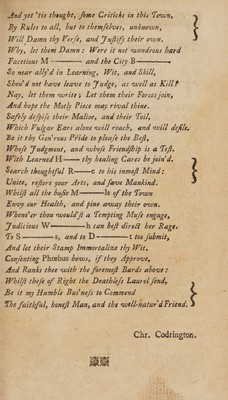 And yet 'tis thought, some Criticks in this Town,
By Rules to all, but to themselves, unknown,
Will Damn thy Verse, and Justify their own.
Why, let them Damn: Were it not wondrous hard
Facetious M—— and the City B——
So near ally'd in Learning, Wit, and Skill,
Shou'd not have leave to Judge, as well as Kill?
Nay, let them write; Let them their Forces join,
And hope the Motly Piece may rival thine.
Safely despise their Malice, and their Toil,
Which Vulgar Ears alone will reach, and will defile.
Be it thy Gen'rous Pride to please the Best,
Whose Judgment, and whose Friendship is a Test.
With Learned H—— thy healing Cares be join'd.
Search thoughtful R——e to his inmost Mind:
Unite, restore your Arts, and save Mankind.
Whilst all the busie M——ls of the Town
Envy our Health, and pine away their own.
Whene'er thou would'st a Tempting Muse engage,
Judicious W——h can best direct her Rage.
To S——s, and to D——t too submit,
And let their Stamp Immortalize thy Wit.
Consenting Phœbus bows, if they Approve,
And Ranks thee with the foremost Bards above:
Whilst these of Right the Deathless Laurel send,
Be it my Humble Bus'ness to Commend
The faithful, honest Man, and the well-natur'd Friend.
Chr. Codrington.